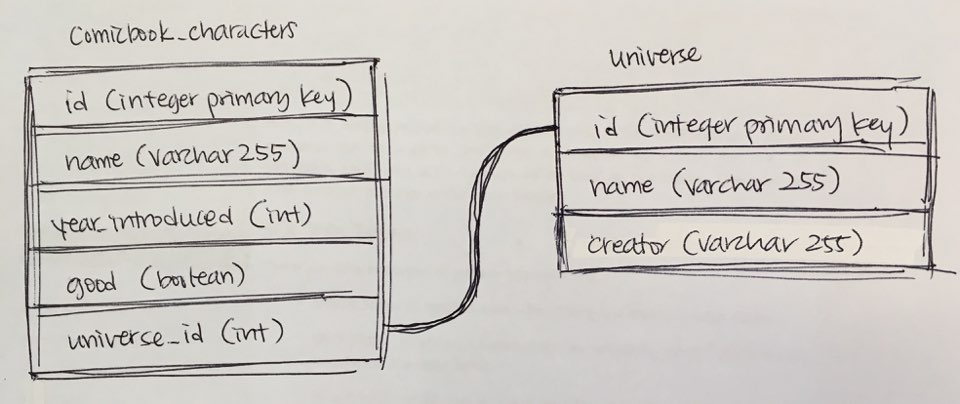 comicbook_characters
id (integer primary key)
name (varchar 255)
year_introduced (int)
good (boolean)
universe_id (int)
universe
id (integer primary key)
name (varchar 255)
creator (varchar 255)